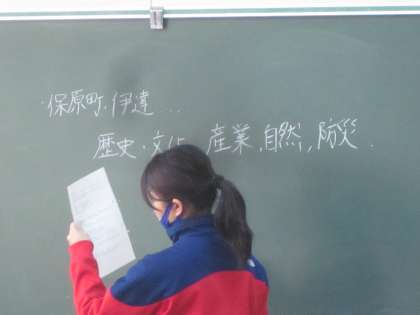 ・保原町、伊達...
歴史・文化 産業、自然、防災.